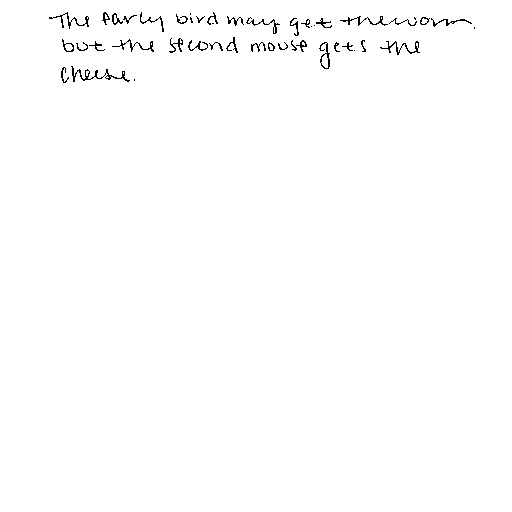 The early bird may get the worm.
but the second mouse gets the
cheese.